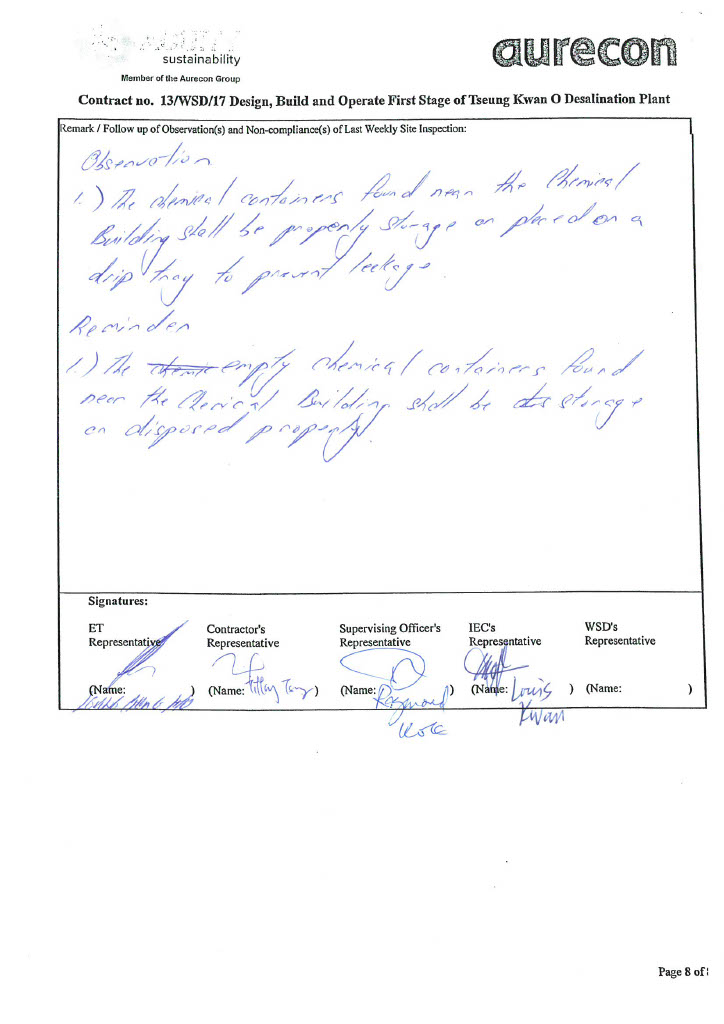 sustainability
aurecon
Member of the Aurecon Group
Contract no. 13/WSD/17 Design, Build and Operate First Stage of Tseung Kwan O Desalination Plant
Remark / Follow up of Observation(s) and Non-compliance(s) of Last Weekly Site Inspection:
Observation
1.) The chemical containers found near the Chemical
Building shall be properly storage or placed on a
drip tray to prevent leekage.
Reminder
1.) The empty chemical containers found
near the Chemical Building shall be storage
or disposed properly.
Signatures:
ET Representative
Contractor's Representative
Supervising Officer's Representative
IEC's Representative
WSD's Representative
(Name: ) (Name: Tiffany Tang) (Name: Raymond) (Name: Louis ) (Name: )
Kwan
Page 8 of